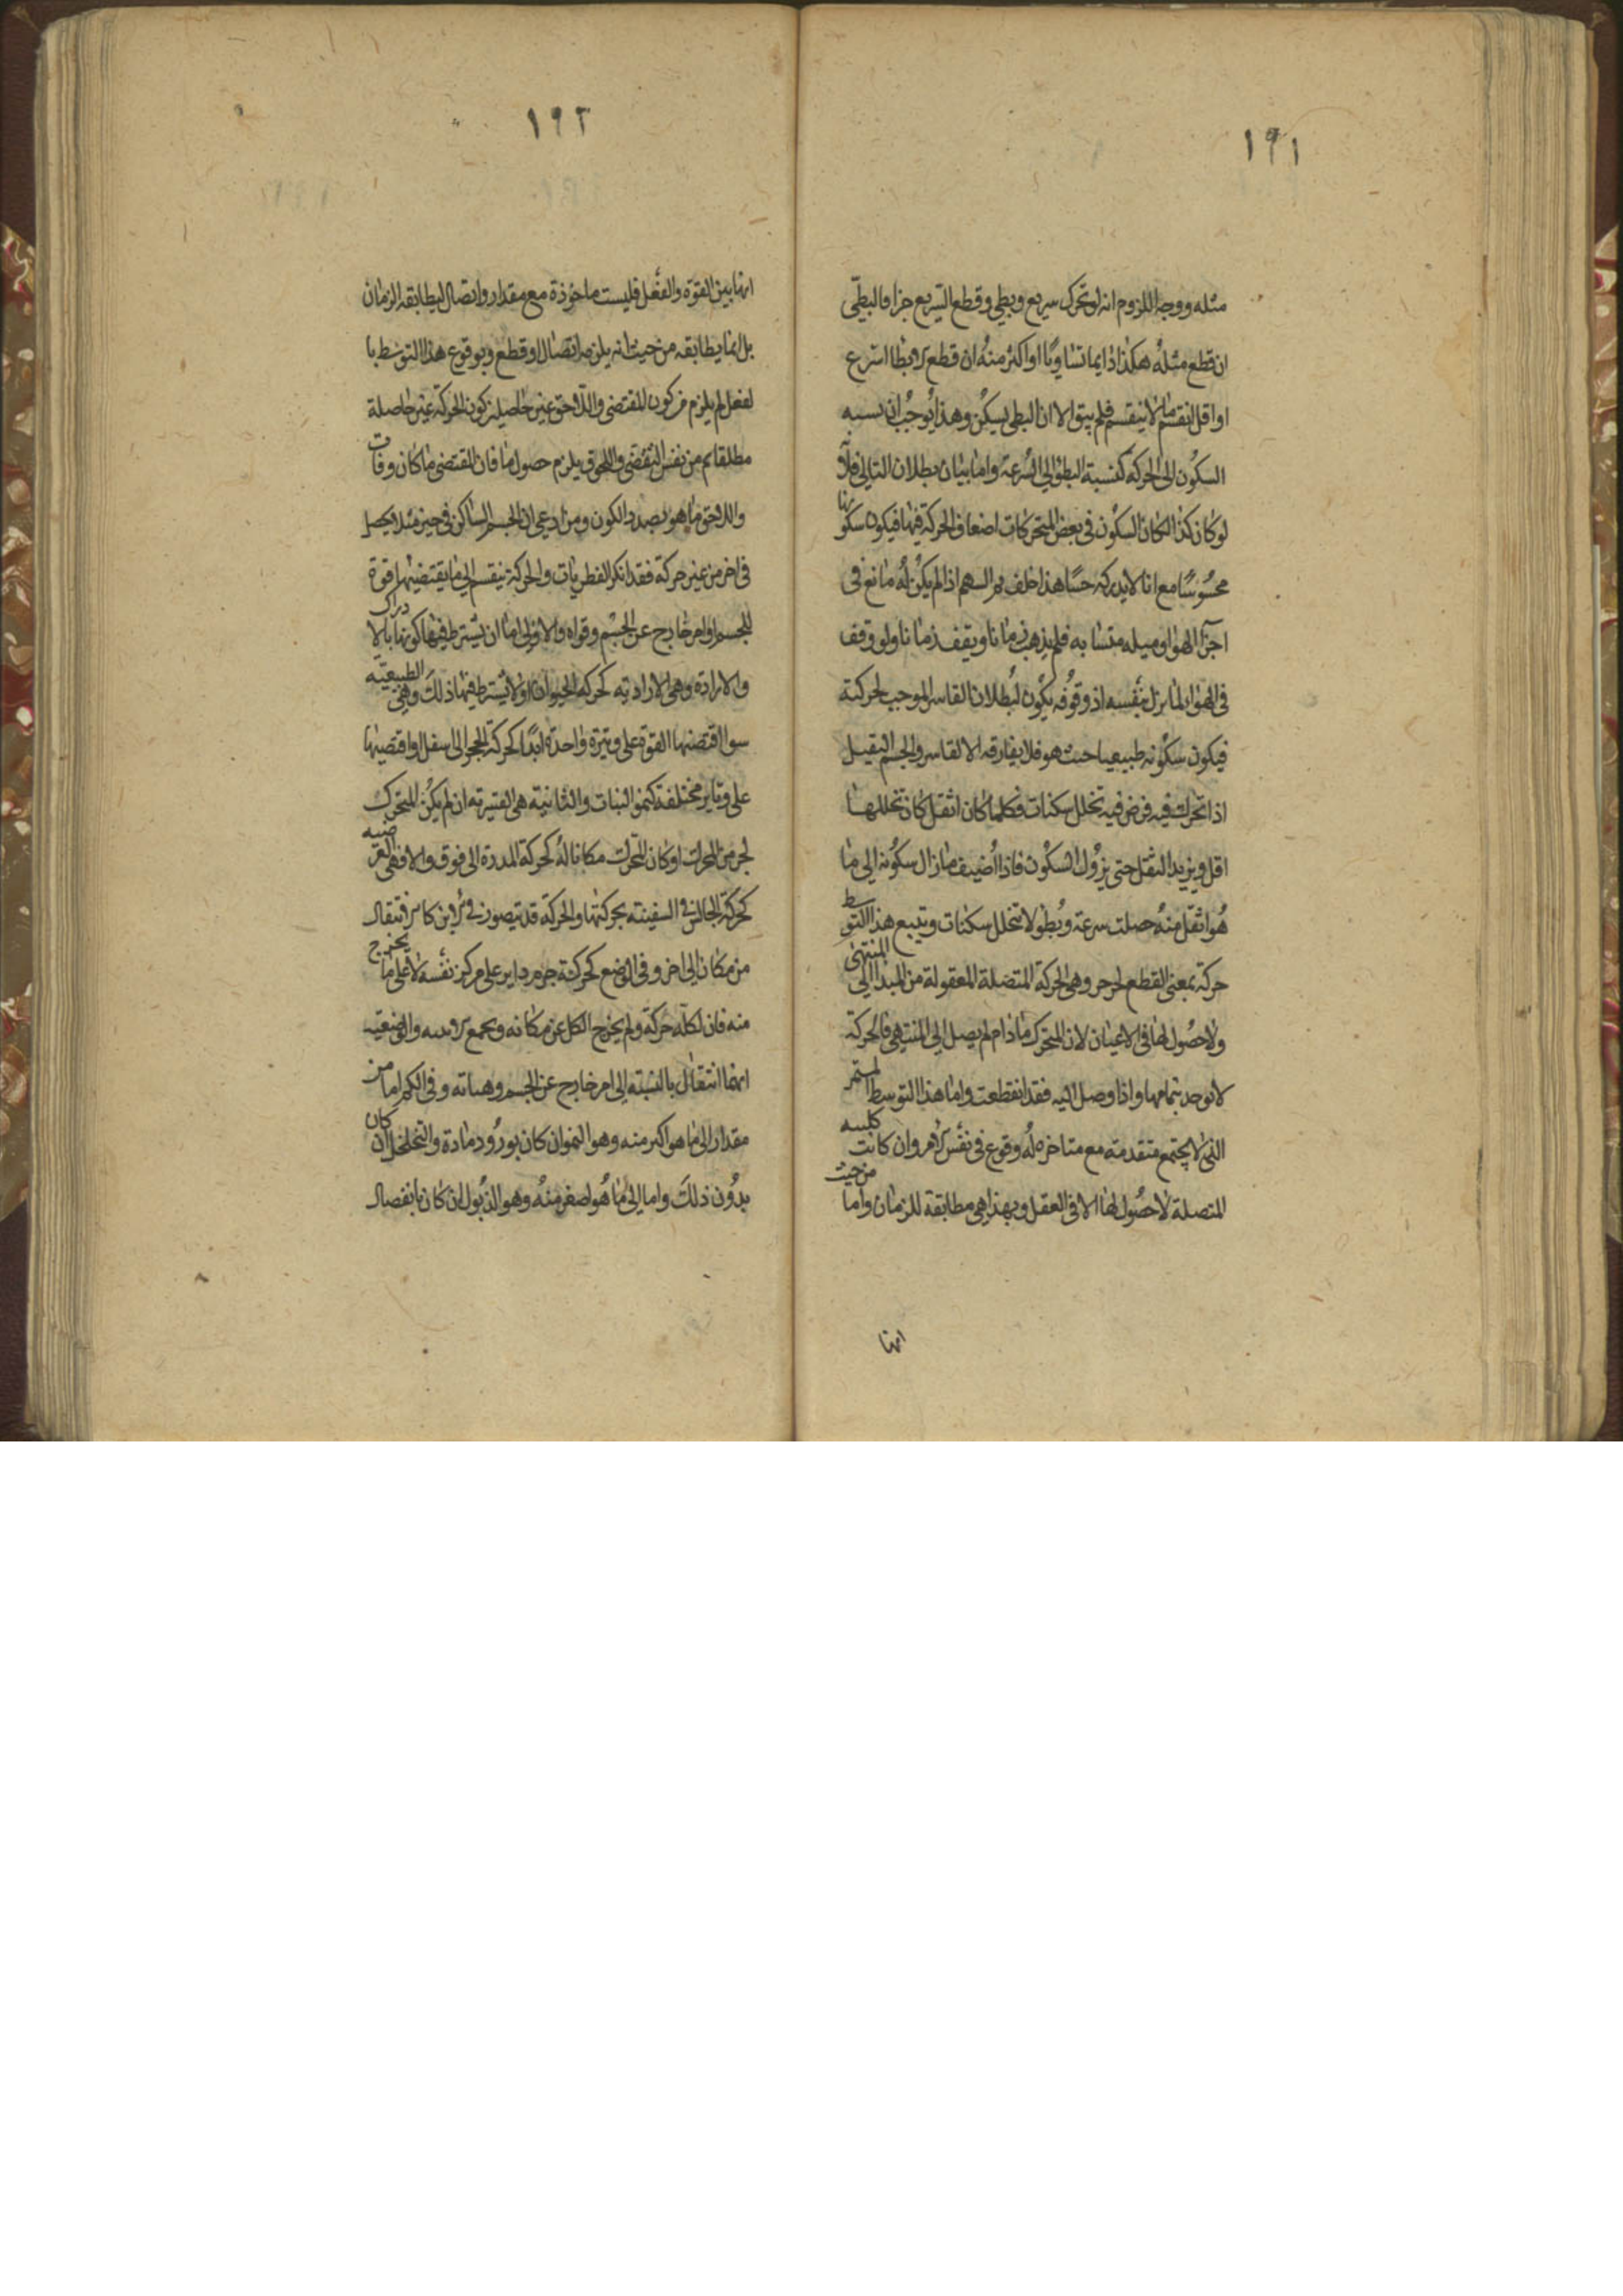 ١٩١
مثله ووجه اللزوم انه لو تحرك سريع وبطى وقطع السريع جزا فالبطى
ان قطع مثله هكذا دايما تساويا او اكثر منه ان قطع الابطا اسرع
او اقل انقسم ما لا ينقسم فلم يبق الا ان البطى يسكن وهذا يوجب ان نسبه
السكون الى الحركة كنسبة البطؤ الى السرعة واما بيان بطلان التالى فلانا
لو كان كذا لكان السكون فى بعض المتحركات اضعاف الحركة فيها فيكون سكونها
محسوسا مع انا لا ندركه حسا هذا خلف ثم السهم اذا لم يكن له مانع فى
اجزا الهوا وميله متشابه فلم يذهب زمانا ويقف زمانا ولو وقف
فى الهوا لما نزل بنفسه اذ وقوفه يكون لبطلان القاسر الموجب لحركته
فيكون سكونه طبيعيا حيث هو فلا يفارقه الا لقاسر والجسم الثقيل
اذا تحرك فيه فرض فيه تخلل سكنات فكلما كان اثقل كان تخللها
اقل ويزيد الثقل حتى يزول السكون فاذا اضيف ما زال سكونه الى ما
هو اثقل منه حصلت سرعة وبطو لا تتخلل سكنات ويتبع هذا التوسط
حركة بمعنى القطع وهى الحركة المتصلة المعقولة من المبدا الى المنتهى
ولا حصول لها فى الاعيان لان المتحرك ما دام لم يصل الى المنتهى فالحركة
لا توجد بتمامها واذا وصل اليه فقد انقطعت واما هذا التوسط المستمر
الذى لا يجتمع متقدمته مع متاخره له وقوع فى نفس الامر وان كانت كليته
المتصلة لا حصول لها الا فى العقل وبهذا هى مطابقة للزمان واما من حيث
انها
١٩٢
انها بين القوة والفعل فليست ماخوذة مع مقدار واتصال ليطابقه الزمان
بل انما يطابقه من حيث انه يلزمه اتصال او قطع وبوقوع هذا التوسط با
لفعل لم يلزم من كون المقتضى واللاحق غير حاصلين كون الحركة غير حاصلة
مطلقا ثم من نفس التقضى واللحوق يلزم حصول ما فان المقتضى ما كان وفات
واللاحق ما هو بصدد الكون ومن ادعى ان الجسم الساكن فى حيز مثلا يحصل
فى اخر من غير حركة فقد انكر الفطريات والحركة تنقسم الى ما يقتضيها قوة
للجسم او امر خارج عن الجسم وقواه والاولى اما ان يشترط فيها كونها بالادراك
والارادة وهى الارادية كحركة الحيوان او لا يشترط فيها ذلك وهى الطبيعية
سوا اقتضتها القوة على وتيرة واحدة ابدا كحركة الحجر الى اسفل او اقتضتها
على وتاير مختلفة كنمو النبات والثانية هى القسرية ان لم يكن المتحرك
لجزء من المحرك او كان المتحرك مكانا له كحركة المدرة الى فوق والا فهى العرضيه
كحركة الجالس فى السفينة بحركتها والحركة قد تتصور فى الاين كالانتقال
من مكان الى اخر وفى الوضع كحركة جرم داير على مركز نفسه لا على ما يخرج
منه فان لكله حركة ولم يخرج الكل عن مكانه ويجمع الاينيه والوضعيه
انهما انتقال بالنسبة الى امر خارج عن الجسم وهيأته وفى الكم اما من
مقدار الى ما هو اكبر منه وهو النمو ان كان بورود مادة والتخلخل ان كان
بدون ذلك واما الى ما هو اصغر منه وهو الذبول ان كان بانفصال